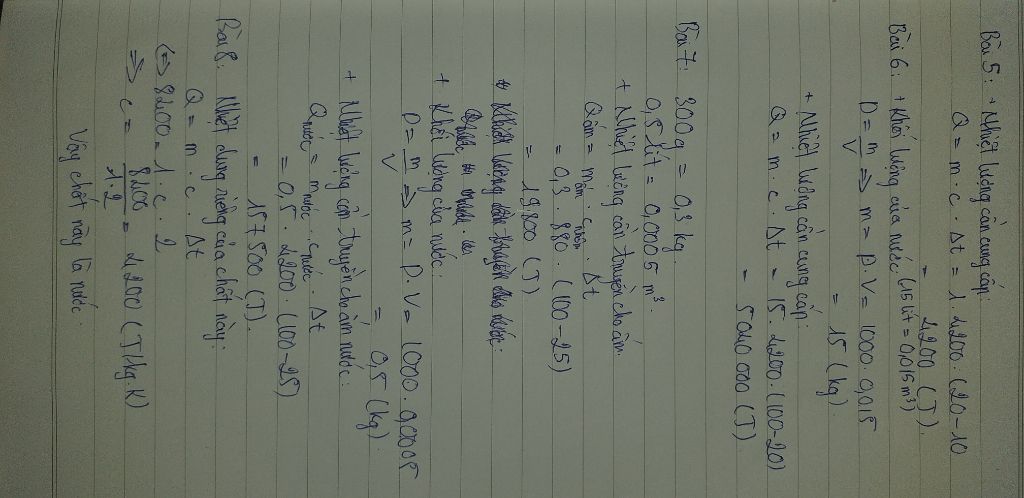 Bài 5: + Nhiệt lượng cần cung cấp:
Q = m · c · Δt = 1 4200 · (20-10
= 4200 (J).
Bài 6: + Khối lượng của nước (15 lít = 0,015 m³)
D = m/V => m = D. V = 1000. 0,015
= 15 (kg)
+ Nhiệt lượng cần cung cấp:
Q = m · c · Δt = 15. 4200 · (100-20)
= 5040 000 (J)
Bài 7: 300g = 0,3 kg
0,5 lít = 0,0005 m³.
+ Nhiệt lượng cần truyền cho ấm:
Q ấm = m ấm · c nhôm · Δt
= 0,3 · 880 · (100-25)
= 19800 (J)
+ Khối lượng của nước:
D = m/V => m = D. V = 1000 . 0,0005
= 0,5 (kg)
+ Nhiệt lượng cần truyền cho ấm nước:
Q nước = m nước · c nước · Δt
= 0,5 · 4200 · (100-25)
= 157500 (J).
Bài 8: Nhiệt dung riêng của chất này:
Q = m · c · Δt
(=) 8400 = 1 · c · 2
=> c = 8400/1.2 = 4200 (J/kg.K)
Vậy chất này là nước.